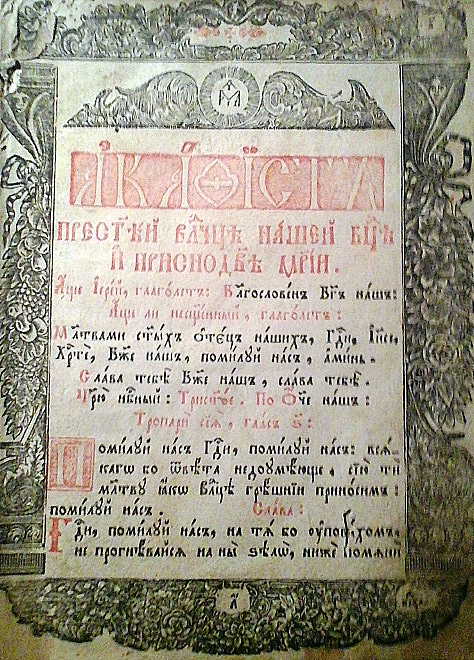 А҆КА́ѲІСТА
ПРЕСТ҃ѢЙ ВЛ҃ЧЦѢ НА́ШЕЙ БЦ҃Ѣ
И҆ ПРИСНОДВ҃Ѣ МР҃ІИ.
А҆́ще І҆ере́й, глаго́летъ: Благослове́нъ Бг҃ъ на́шъ:
А҆́ще ли несщ҃е́нный, глаго́летъ:
Мл҃твами ст҃ы́хъ ѻ҆те́цъ на́шихъ, Гд҃и, І҆и҃се,
Хр҃те́, Бж҃е на́шъ, поми́луй на́съ, а҆ми́нь.
Сла́ва тебѣ̀ Бж҃е на́шъ, сла́ва тебѣ̀.
Цр҃ю̀ нб҃ный: Трист҃о́е. По Ѻ҆́ч҃е на́шъ:
Тропарѝ сїѧ̑, гла́съ ѕ҃:
Поми́луй на́съ Гд҃и, поми́луй на́съ: всѧ́-
кагѡ бо ѿвѣ́та недоумѣ́юще, сїю̀ ти
мл҃тву ꙗ҆́кѡ Влⷣцѣ грѣ́шнїи прино́симъ:
поми́луй на́съ. Сла́ва:
Гд҃и, поми́луй на́съ, на тѧ́ бо ᲂу҆пова́хомъ,
не прогнѣ́вайсѧ на ны̀ ѕѣлѡ̀, нижѐ помѧнѝ